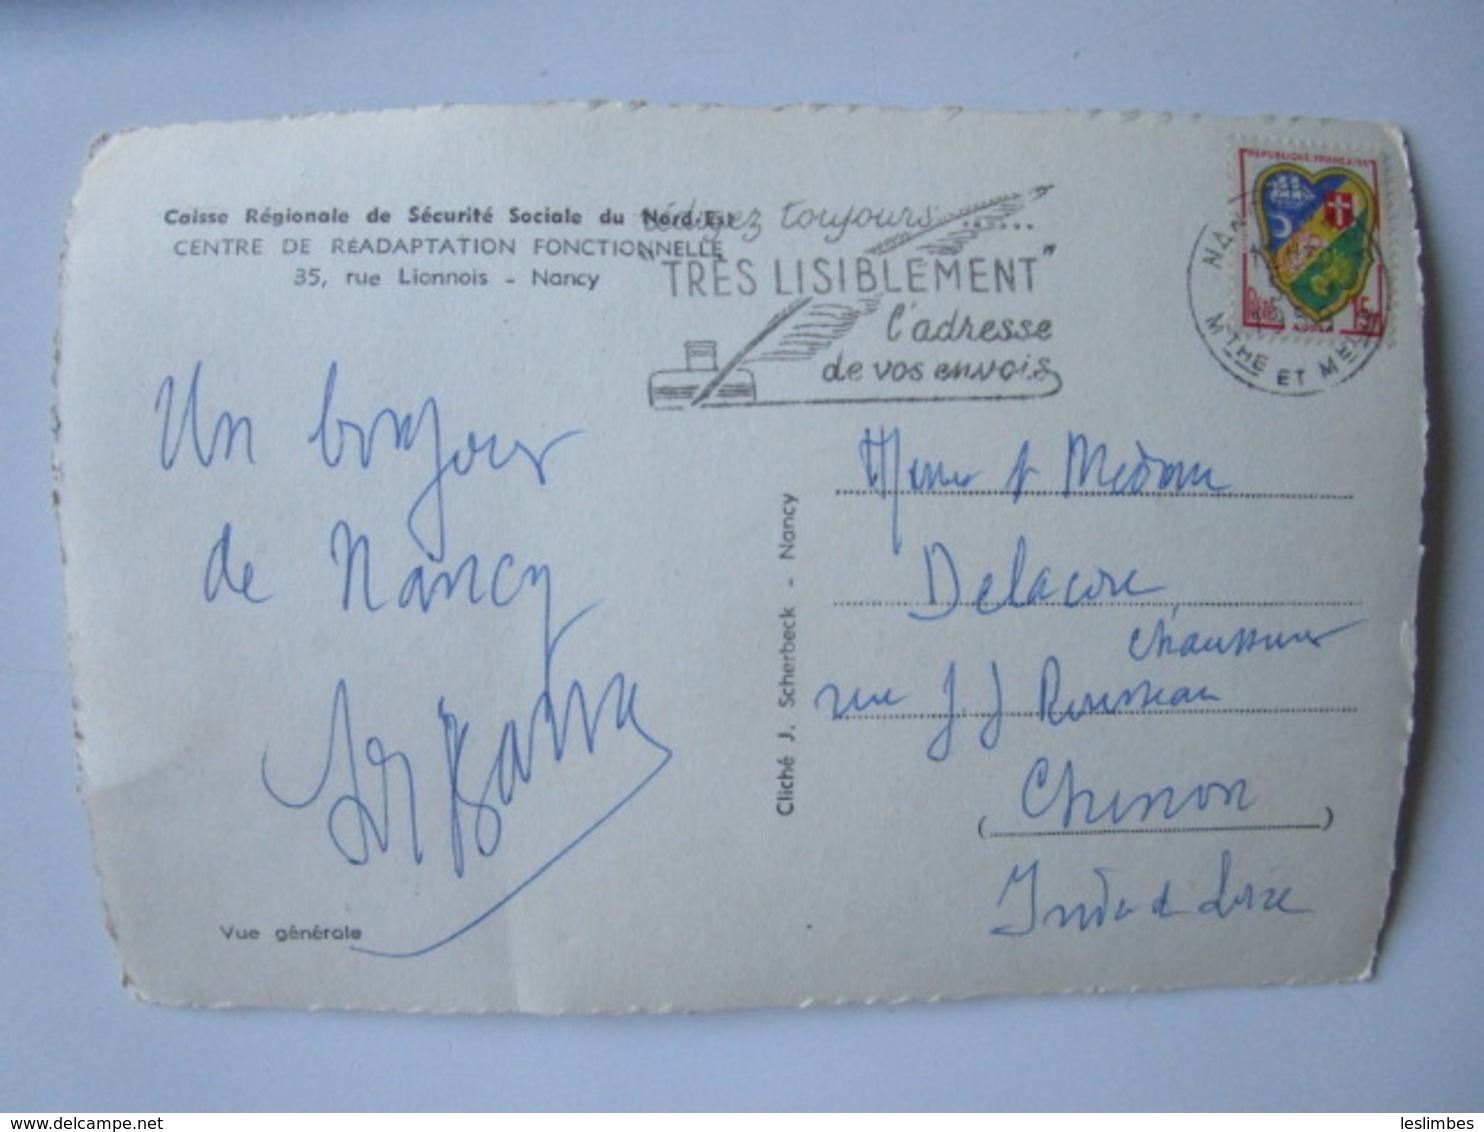 Caisse Régionale de Sécurité Sociale du Nord-Est
CENTRE DE RÉADAPTATION FONCTIONNELLE
35, rue Lionnois - Nancy
rédigez toujours......
"TRÈS LISIBLEMENT"
l'adresse
de vos envois
REPUBLIQUE FRANÇAISE
15F
NANCY
MTHE ET MELLE
Un bonjour
de Nancy
Vue générale
Cliché J. Scherbeck - Nancy
Delacore
Chaussures
rue J. J Rousseau
(Chinon)
Indre de Loire
leslimbes